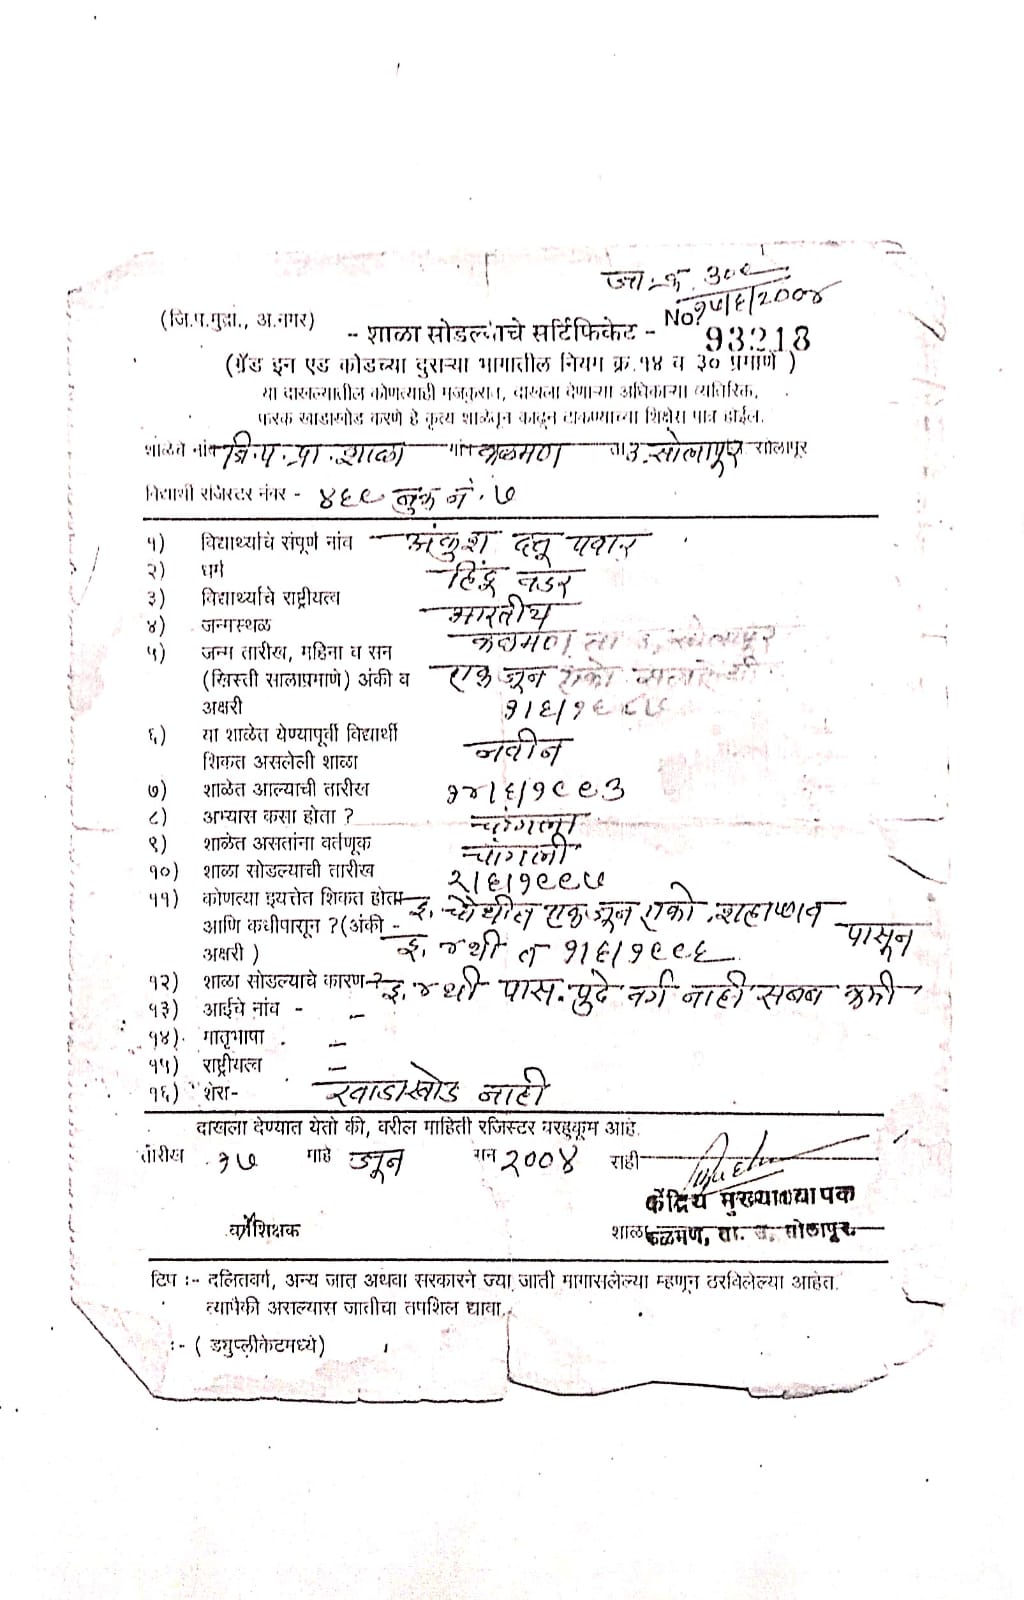 जा.क्र. ३०९
(जि.प.मुद्रा., अ.नगर)
१५/६/२००४
- शाळा सोडल्याचे सर्टिफिकेट - No. 93218
(ग्रँड इन एड कोडच्या दुसऱ्या भागातील नियम क्र.१४ व ३० प्रमाणे )
या दाखल्यातील कोणत्याही मजकुरात, दाखला देणाऱ्या अधिकाऱ्या व्यतिरिक्त,
फरक खाडाखोड करणे हे कृत्य शाळेतून काढून टाकण्याच्या शिक्षेस पात्र होईल.
शाळेचे नांव जि.प.प्रा.शाळा गांव कळमण ता उ.सोलापूर सोलापूर
विद्यार्थी रजिस्टर नंबर - ४६९ बुक नं. ७
१) विद्यार्थ्याचे संपूर्ण नांव अंकुश दत्तू पवार
२) धर्म हिंदू वडर
३) विद्यार्थ्याचे राष्ट्रीयत्व भारतीय
४) जन्मस्थळ कळमण ता उ. सोलापूर
५) जन्म तारीख, महिना व सन
(ख्रिस्ती सालाप्रमाणे) अंकी व एक जून एको
अक्षरी १/६/१९८७
६) या शाळेत येण्यापूर्वी विद्यार्थी
शिकत असलेली शाळा नवीन
७) शाळेत आल्याची तारीख १४/६/१९९३
८) अभ्यास कसा होता ? चांगला
९) शाळेत असतांना वर्तणूक चांगली
१०) शाळा सोडल्याची तारीख २/६/१९९७
११) कोणत्या इयत्तेत शिकत होता इ. चौथीत एक जून एको .शहाण्णव पासून
आणि कधीपासून ?(अंकी -
अक्षरी ) इ. ४थी त १/६/१९९६
१२) शाळा सोडल्याचे कारण-? इ. ४थी पास. पुढे वर्ग नाही सबब कमी
१३) आईचे नांव - -
१४). मातृभाषा . -
१५) राष्ट्रीयत्व -
१६) शेरा- खाडाखोड नाही
दाखला देण्यात येतो की, वरील माहिती रजिस्टर बरहुकूम आहे.
तारीख १७ माहे जून सन २००४ सही
केंद्रिय मुख्याध्यापक
वर्गशिक्षक शाळा कळमण, ता. उ. सोलापूर.
टिप :- दलितवर्ग, अन्य जात अथवा सरकारने ज्या जाती मागासलेल्या म्हणून ठरविलेल्या आहेत.
त्यापैकी असल्यास जातीचा तपशिल द्यावा.
:- ( ड्युप्लीकेटमध्ये)